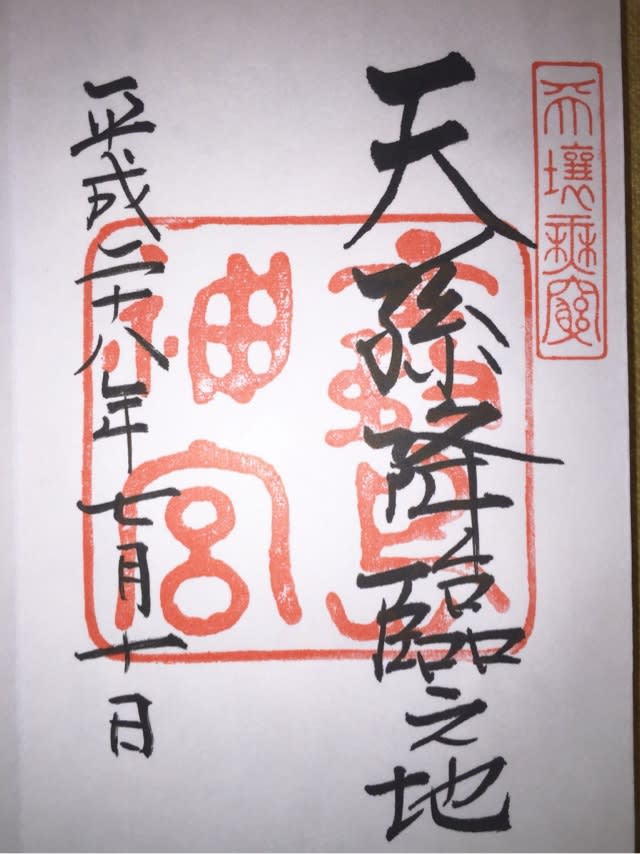 天壤無窮
天孫降臨之地
神宮
平成二十八年七月十日